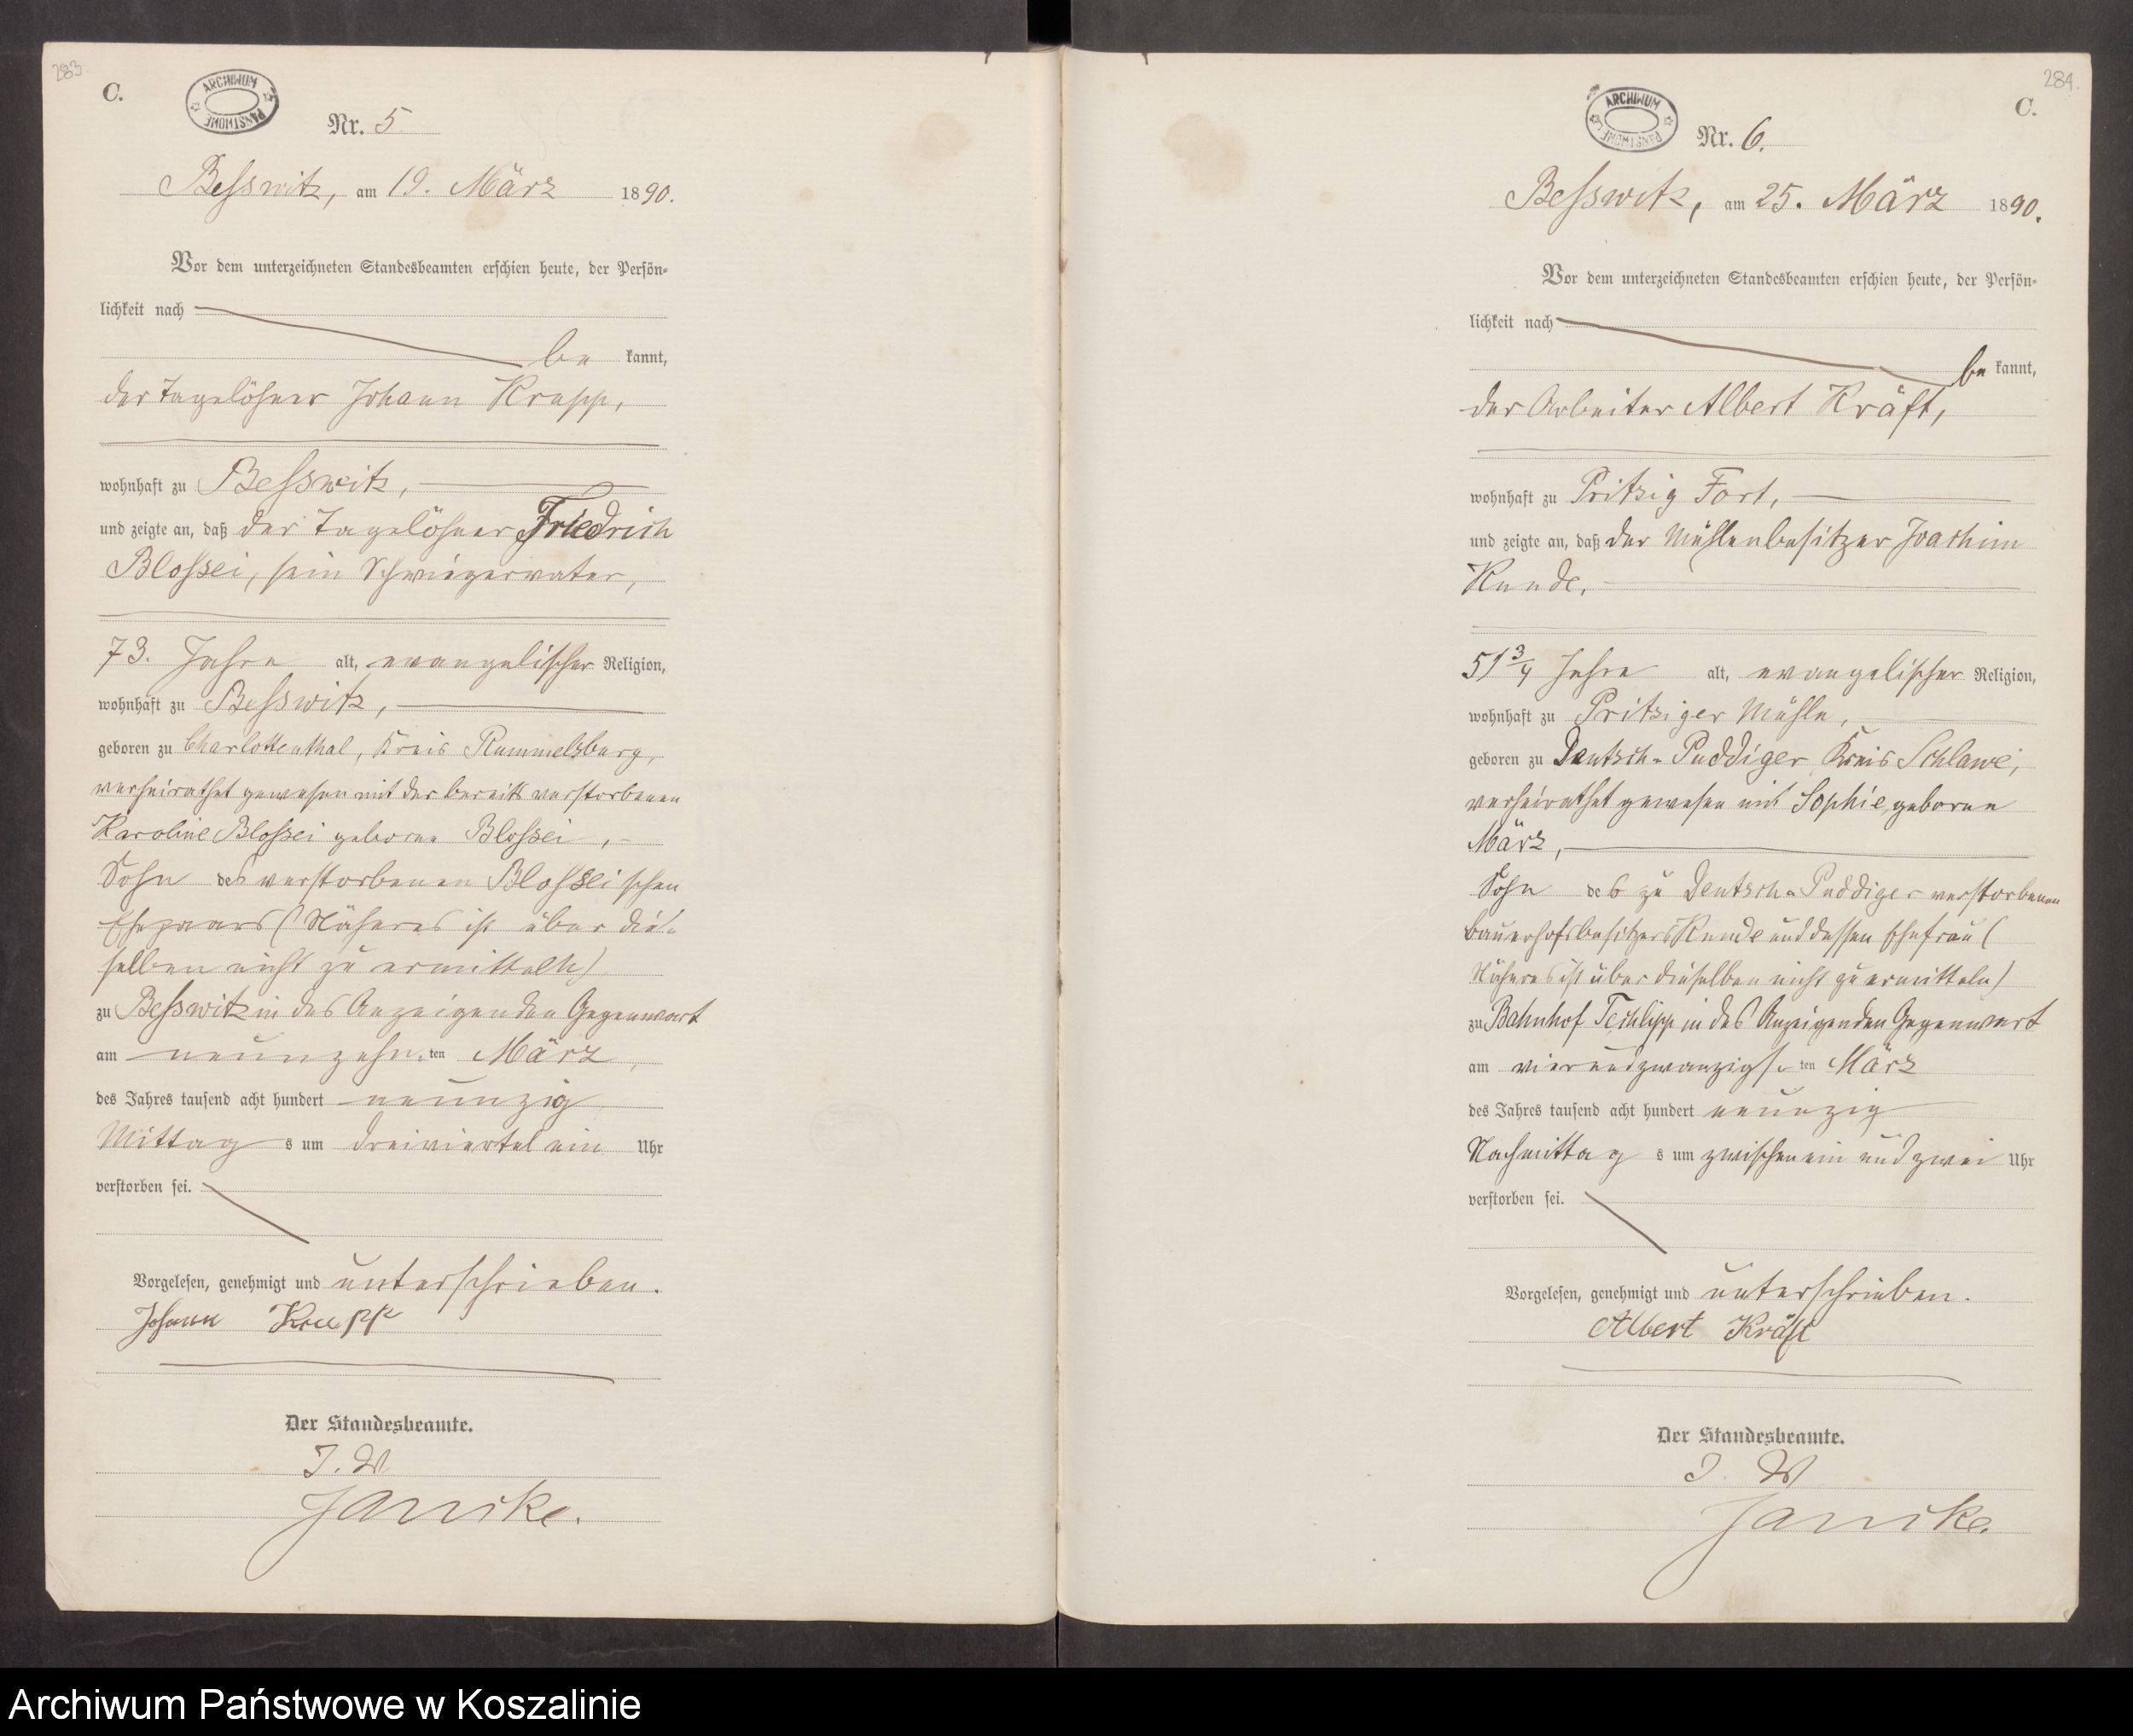 283.
C.
ARCHIWUM PAŃSTWOWE
Nr. 5
Beßwitz, am 19. März 1890.
Vor dem unterzeichneten Standesbeamten erschien heute, der Persön-
lichkeit nach
be kannt,
der Tagelöhner Johann Krupp,
wohnhaft zu Beßwitz,
und zeigte an, daß der Tagelöhner Friedrich
Bloßei, sein Schwiegervater,
73. Jahre alt, evangelischer Religion,
wohnhaft zu Beßwitz,
geboren zu Charlottenthal, Kreis Rummelsburg,
verheirathet gewesen mit der bereits verstorbenen
Karoline Bloßei geborne Bloßei,
Sohn des verstorbenen Bloßei'schen
Ehepaars (Näheres ist über die-
selben nicht zu ermitteln)
zu Beßwitz in des Anzeigenden Gegenwart
am neunzehn ten März,
des Jahres tausend acht hundert neunzig
Mittag s um dreiviertel ein Uhr
verstorben sei.
Vorgelesen, genehmigt und unterschrieben.
Johann Krupp
Der Standesbeamte.
J. V.
Janike.
284.
C.
ARCHIWUM PAŃSTWOWE
Nr. 6.
Beßwitz, am 25. März 1890.
Vor dem unterzeichneten Standesbeamten erschien heute, der Persön-
lichkeit nach
be kannt,
der Arbeiter Albert Kräft,
wohnhaft zu Pritzig Forst,
und zeigte an, daß der Mühlenbesitzer Joachim
Kunde,
51 3/4 Jahre alt, evangelischer Religion,
wohnhaft zu Pritziger Mühle,
geboren zu Deutsch-Puddiger Kreis Schlawe,
verheirathet gewesen mit Sophie, geborne
März,
Sohn des zu Deutsch-Puddiger verstorbenen
Bauerhofsbesitzers Kunde und dessen Ehefrau (
Näheres ist über dieselben nicht zu ermitteln)
zu Bahnhof Techlipp in des Anzeigenden Gegenwart
am vierundzwanzigs ten März
des Jahres tausend acht hundert neunzig
Nachmittag s um zwischen ein und zwei Uhr
verstorben sei.
Vorgelesen, genehmigt und unterschrieben.
Albert Kräft
Der Standesbeamte.
J. V.
Janike.
Archiwum Państwowe w Koszalinie